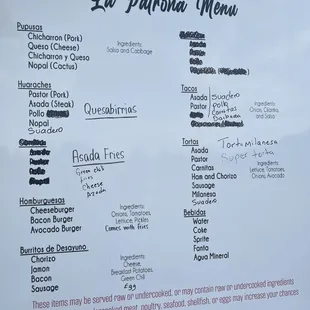 La Patrona Menu
Pupusas
Chicharron (Pork)
Queso (Cheese)
Chicharron y Queso
Nopal (Cactus)
Ingredients:
Salsa and Cabbage
Huaraches
Pastor (Pork)
Asada (Steak)
Pollo
Nopal
Suadero
Quesabirrias
Asada Fries
Fries
Cheese
Asada
Hamburguesas
Cheeseburger
Bacon Burger
Avocado Burger
Ingredients:
Onions, Tomatoes,
Lettuce, Pickles
Comes with fries
Burritos de Desayuno
Chorizo
Jamon
Bacon
Sausage
Ingredients:
Cheese,
Breakfast Potatoes,
Green Chili
Egg
Asada
Pastor
Pollo
Tacos
Asada
Pastor
Suadero
Pollo
Carnitas
Barbacoa
Ingredients:
Onion, Cilantro,
and Salsa
Tortas
Asada
Pastor
Carnitas
Ham and Chorizo
Sausage
Milanesa
Suadero
Torta milanesa
Super torta
Ingredients:
Onions, Tomatoes,
Onions, Avocado
Bebidas
Water
Coke
Sprite
Fanta
Agua Mineral
These items may be served raw or undercooked, or may contain raw or undercooked ingredients
cooked meat, poultry, seafood, shellfish, or eggs may increase your chances